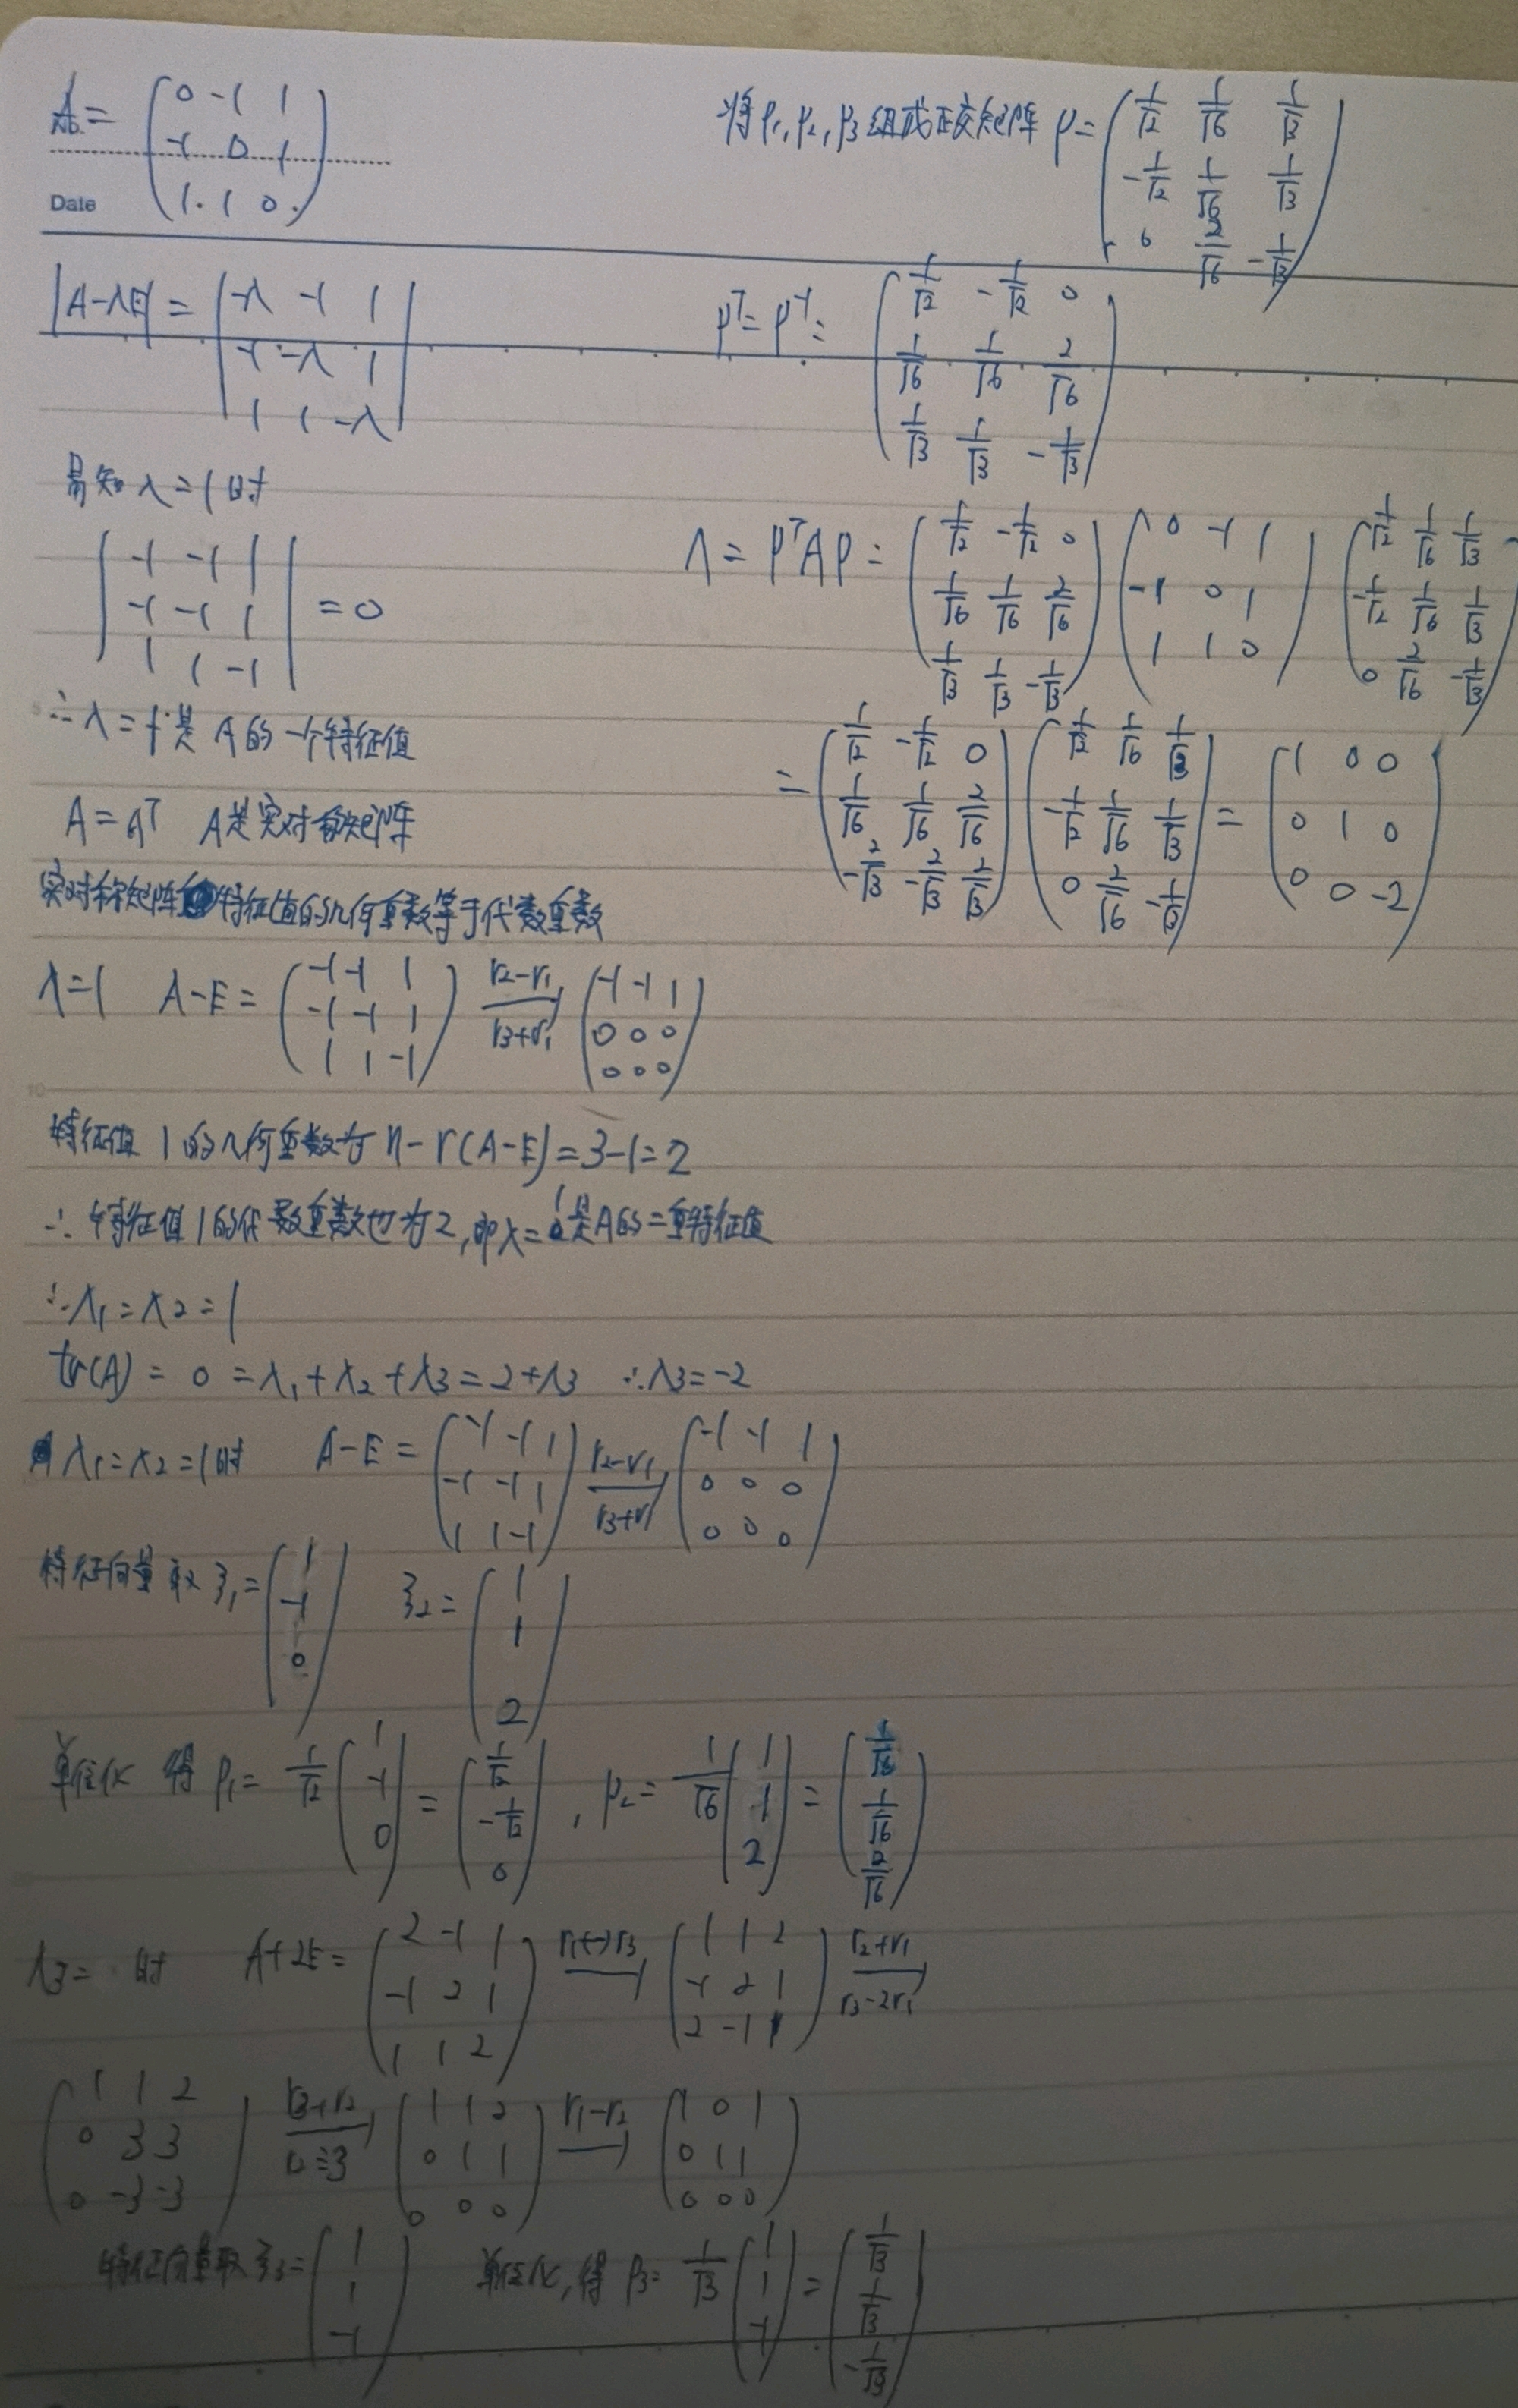 A = (0 -1 1
No.
-1 0 1
Date
1 1 0)
|A-λE| = |-λ -1 1
-1 -λ 1
1 1 -λ|
易知 λ=1时
|-1 -1 1
-1 -1 1
1 1 -1| = 0
∴λ=1是A的一个特征值
A=Aᵀ A是实对称矩阵
实对称矩阵特征值的几何重数等于代数重数
λ=1 A-E= (-1 -1 1
-1 -1 1
1 1 -1) r2-r1 r3+r1 (-1 -1 1
0 0 0
0 0 0)
10
特征值1的几何重数为 n-r(A-E)=3-1=2
∴特征值1的代数重数也为2,即λ=1是A的二重特征值
∴λ1=λ2=1
tr(A) = 0 =λ1+λ2+λ3=2+λ3 ∴λ3=-2
λ1=λ2=1时 A-E= (-1 -1 1
-1 -1 1
1 1 -1) r2-r1 r3+r1 (-1 -1 1
0 0 0
0 0 0)
特征向量取 ξ1= (1
-1
0) ξ2= (1
1
2)
单位化 得 p1= 1/√2 (1
-1
0) = (1/√2
-1/√2
0), p2= 1/√6 (1
1
2) = (1/√6
1/√6
2/√6)
λ3= 时 A+2E= (2 -1 1
-1 2 1
1 1 2) r1↔r3 (1 1 2
-1 2 1
2 -1 1) r2+r1 r3-2r1
(1 1 2
0 3 3
0 -3 -3) r3+r2 r2÷3 (1 1 2
0 1 1
0 0 0) r1-r2 (1 0 1
0 1 1
0 0 0)
特征向量取 ξ3= (1
1
-1) 单位化,得 p3= 1/√3 (1
1
-1) = (1/√3
1/√3
-1/√3)
将p1,p2,p3组成正交矩阵 P= (1/√2 1/√6 1/√3
-1/√2 1/√6 1/√3
0 2/√6 -1/√3)
Pᵀ=P⁻¹= (1/√2 -1/√2 0
1/√6 1/√6 2/√6
1/√3 1/√3 -1/√3)
Λ = PᵀAP = (1/√2 -1/√2 0
1/√6 1/√6 2/√6
1/√3 1/√3 -1/√3) (0 -1 1
-1 0 1
1 1 0) (1/√2 1/√6 1/√3
-1/√2 1/√6 1/√3
0 2/√6 -1/√3)
= (1/√2 -1/√2 0
1/√6 1/√6 2/√6
-2/√3 -2/√3 2/√3) (1/√2 1/√6 1/√3
-1/√2 1/√6 1/√3
0 2/√6 -1/√3) = (1 0 0
0 1 0
0 0 -2)